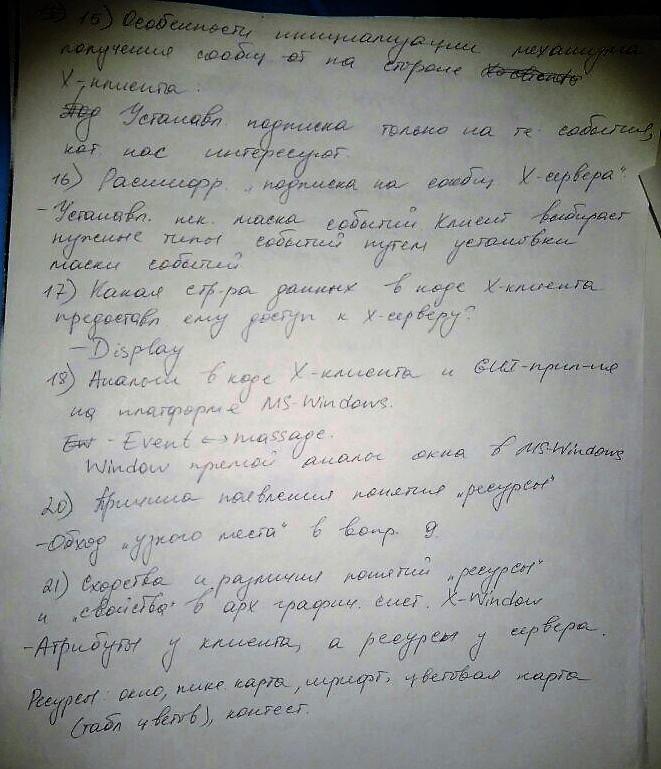 15) Особенности инициализации механизма
получения сообщ от на стороне
X-клиента:
Устанавл. подписка только на те события,
кот. нас интересуют.
16) Расшифр. „подписка на сообщ X-сервера":
- Устанавл. нек. маска событий Клиент выбирает
нужные типы событий путем установки
маски событий
17) Какая стр-ра данных в коде X-клиента
предоставл ему доступ к X-серверу?
- Display
18) Аналоги в коде X-клиента и GUI-прил-ия
на платформе MS-Windows.
- Event ↔ massage.
Window прямой аналог окна в MS-Windows
20) Причина появления понятия „ресурсы"
- Обход „узкого места" в вопр. 9.
21) Сходства и различия понятий „ресурсы"
и „свойства" в арх графич. сист. X-Window
- Атрибуты у клиента, а ресурсы у сервера.
Ресурсы: окно, пикс. карта, шрифт, цветовая карта
(табл цветов), контест.